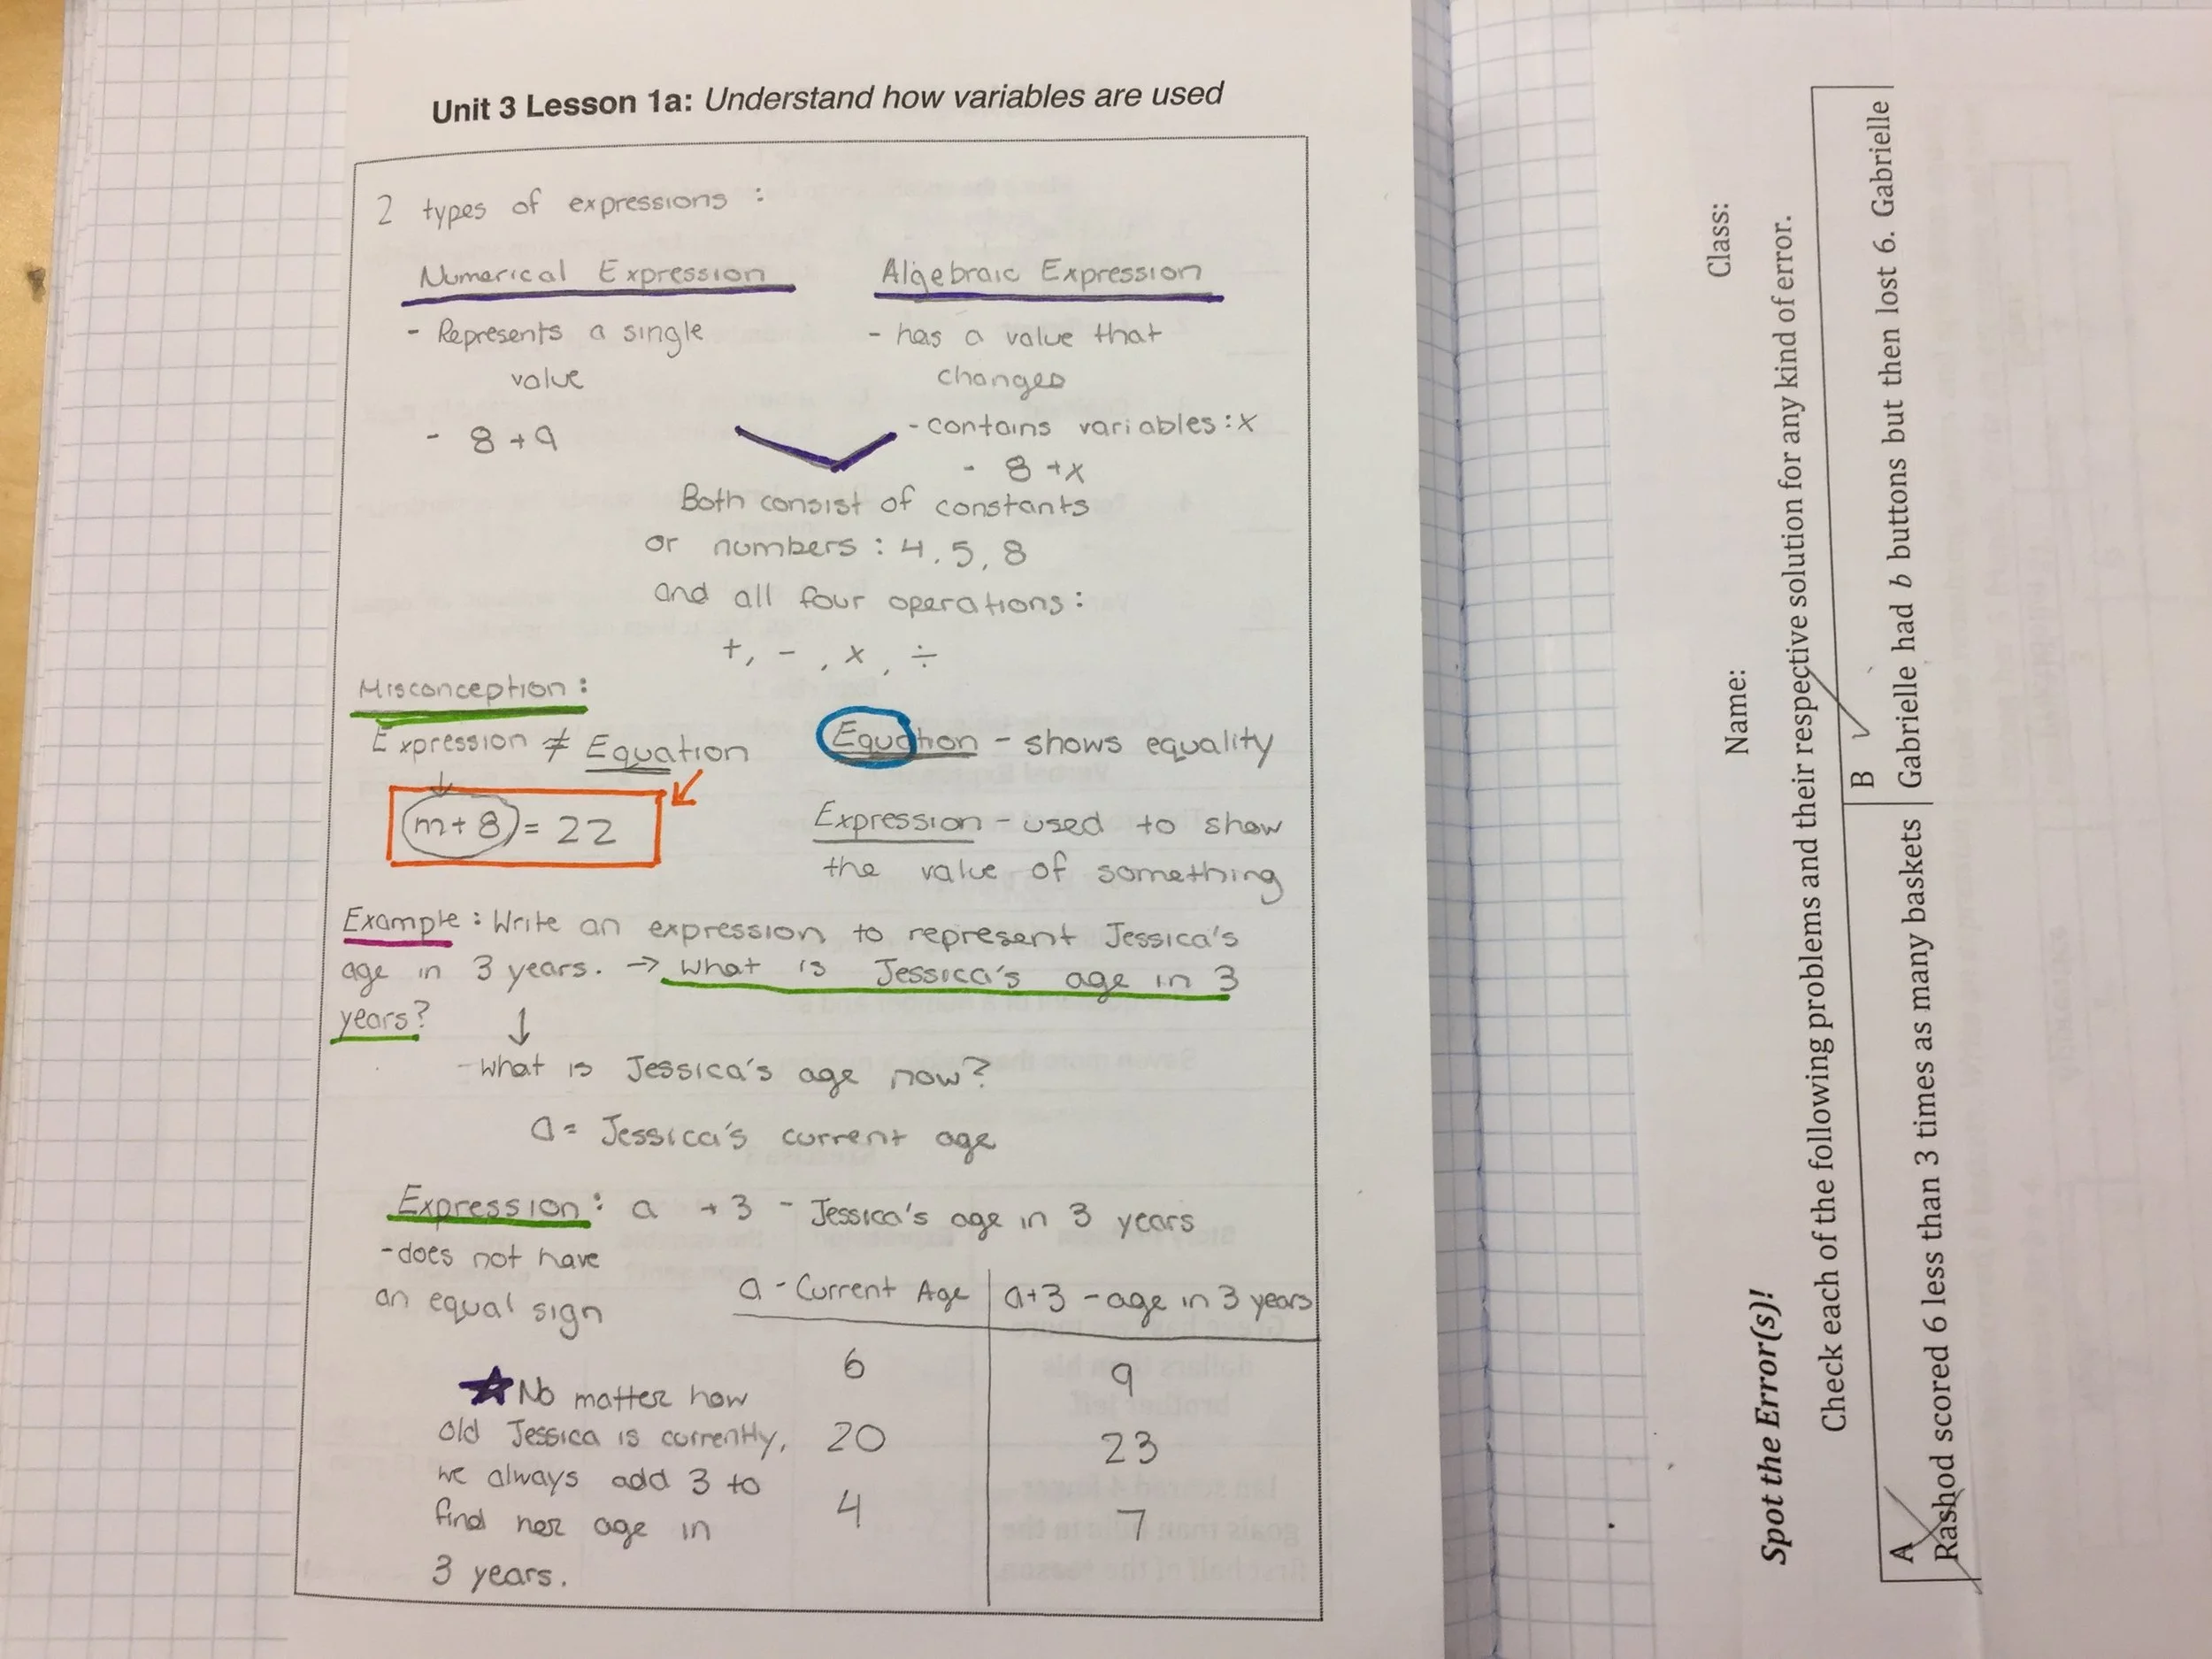 Unit 3 Lesson 1a: Understand how variables are used
2 types of expressions :
Numerical Expression
- Represents a single
value
- 8 + 9
Algebraic Expression
- has a value that
changes
- contains variables : x
- 8 + x
Both consist of constants
or numbers : 4, 5, 8
and all four operations :
+, - , x , ÷
Misconception :
Expression ≠ Equation
m + 8 = 22
Equation - shows equality
Expression - used to show
the value of something
Example : Write an expression to represent Jessica's
age in 3 years. → What is Jessica's age in 3
years? ↓
- What is Jessica's age now?
a = Jessica's current age
Expression : a + 3 - Jessica's age in 3 years
- does not have
an equal sign
a - Current Age | a+3 - age in 3 years
6 9
20 23
4 7
☆ No matter how
old Jessica is currently,
we always add 3 to
find her age in
3 years.
Name: Class:
Spot the Error(s)!
Check each of the following problems and their respective solution for any kind of error.
A
Rashod scored 6 less than 3 times as many baskets
B ✓
Gabrielle had b buttons but then lost 6. Gabrielle